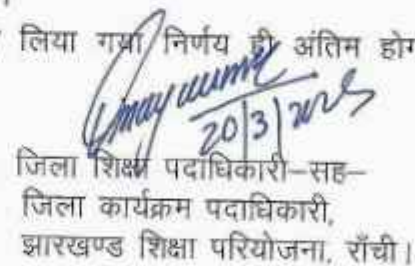 लिया गया निर्णय ही अंतिम होग
20/3/2025
जिला शिक्षा पदाधिकारी–सह–
जिला कार्यक्रम पदाधिकारी,
झारखण्ड शिक्षा परियोजना, राँची।